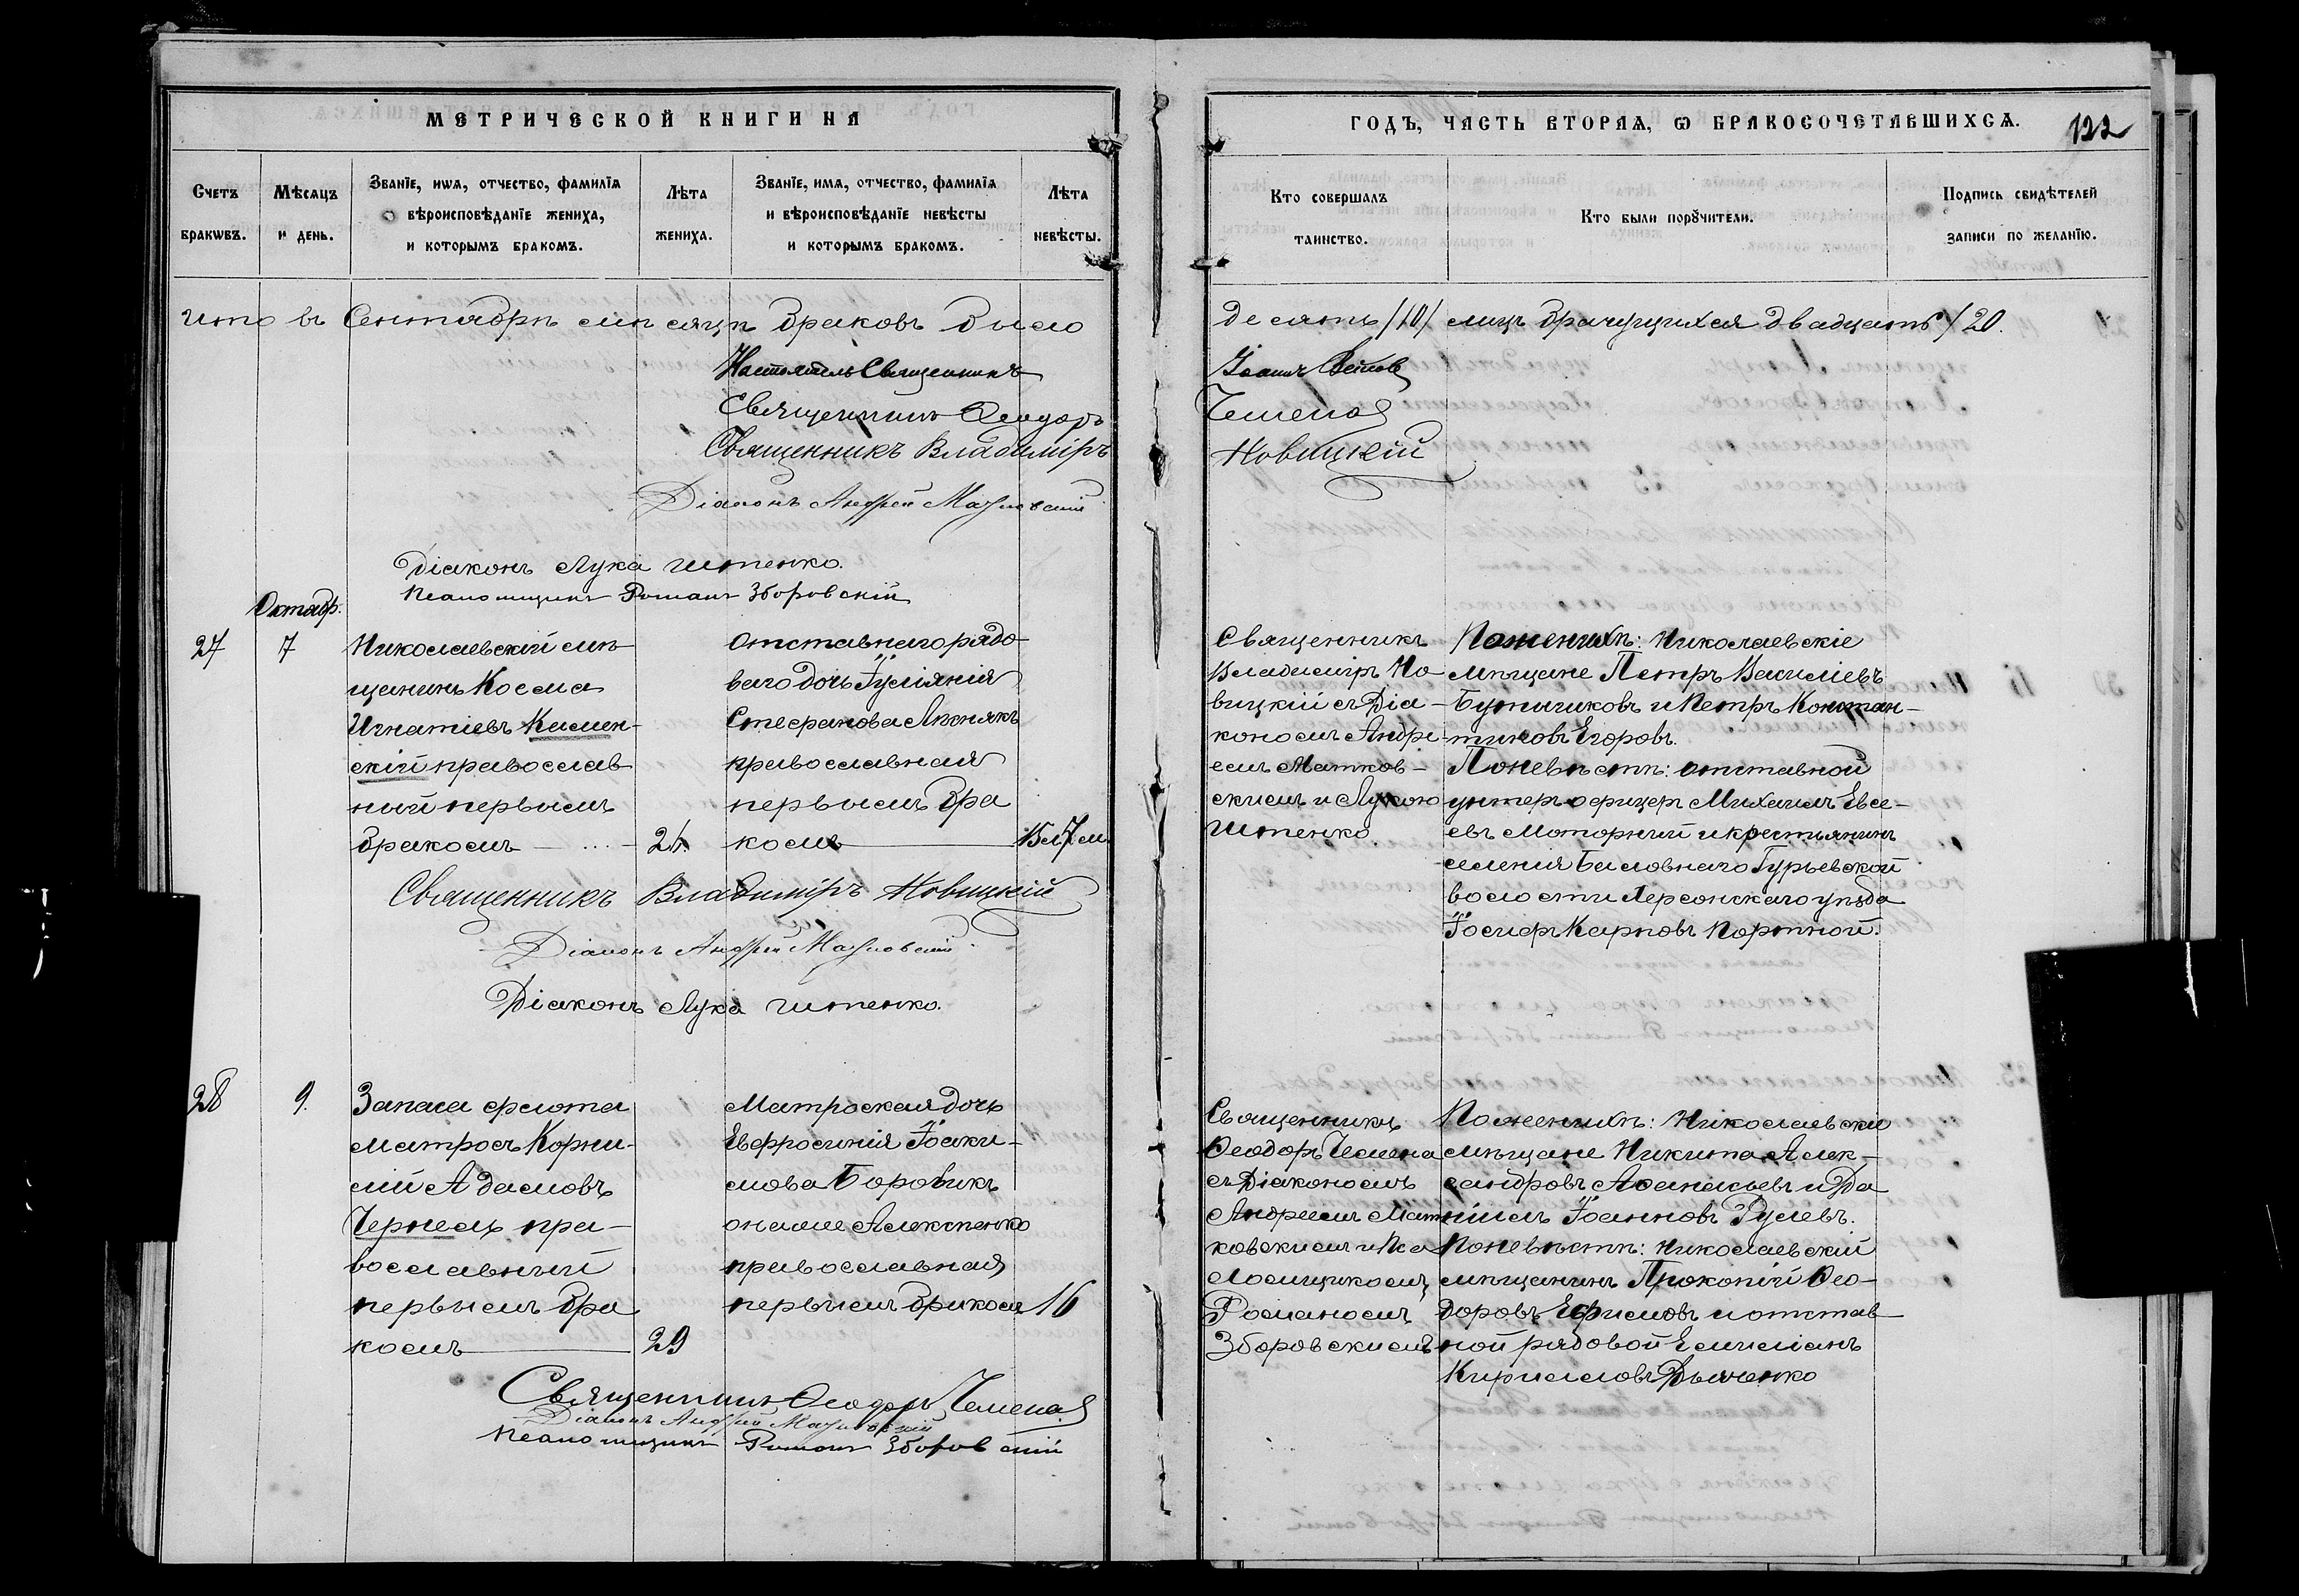 МЕТРИЧЕСКОЙ КНИГИ НА
Счетъ браковъ.
Мѣсяцъ и день.
Званїе, имя, отчество, фамилїя
вѣроисповѣданїе жениха,
и которымъ бракомъ.
Лѣта
жениха.
Званїе, имя, отчество, фамилїя
и вѣроисповѣданїе невѣсты
и которымъ бракомъ.
Лѣта
невѣсты.
Итого въ Сентябрѣ мѣсяцѣ браковъ было
Настоятель Священникъ
Священникъ Ѳеодоръ
Священникъ Владиміръ
Діаконъ Андрей
Діаконъ Лука Итенко.
Псаломщикъ Романъ Зборовскій
Октябр.
27
7
Николаевскій мѣ-
щанинъ Косма
Игнатіевъ Камен-
скій православ
ный первымъ
бракомъ
24.
Отставнаго рядо-
ваго дочь Іуліянія
Стефанова
православная
первымъ бра
комъ
15 л. 7 м.
Священникъ Владиміръ Новицкій
Діаконъ Андрей
Діаконъ Лука Итенко.
28
9.
Запаса флота
матросъ Корни-
лій Адамовъ
Чернецъ пра-
вославный
первымъ бра
комъ
29
Матроская дочь
Евфросинія Іоаки-
мова Боровикъ
она же Алексѣенко
православная
первымъ бракомъ
16
Священникъ Ѳеодоръ
Діаконъ Андрей
Псаломщикъ Романъ Зборовскій
ГОДЪ, ЧАСТЬ ВТОРАЯ, Ѡ БРАКОСОЧЕТАВШИХСЯ.
122
Кто совершалъ
таинство.
Кто были порꙋчители.
Подпись свидѣтелей
записи по желанїю.
десять /10/ лицъ брачущихся двадцать / 20.
Іоаннъ
Новицкій
Священникъ
Владиміръ Но
вицкій съ Діа-
кономъ Андре-
емъ Матков-
скимъ и Лукою
Итенко
По женихѣ: Николаевскіе
мѣщане Петръ Василіевъ
и Петръ Констан-
тиновъ Егоровъ.
По невѣстѣ: отставной
унтеръ-офицеръ Михаилъ Евсе-
евъ Моторный и крестьянинъ
селенія Баловнаго Гурьевской
волости Херсонскаго уѣзда
Іосифъ Карповъ Портной.
Священникъ
Ѳеодоръ
съ Діакономъ
Андреемъ Мат
ковскимъ и Пса
ломщикомъ
Романомъ
Зборовскимъ
По женихѣ: Николаевскіе
мѣщане Никита Алек-
сандровъ Аѳанасьевъ и Да
ніилъ Іоанновъ
По невѣстѣ: Николаевскій
мѣщанинъ Прокопій Ѳео-
доровъ Ефимовъ и отстав
ной рядовой Емиліанъ
Кирилловъ